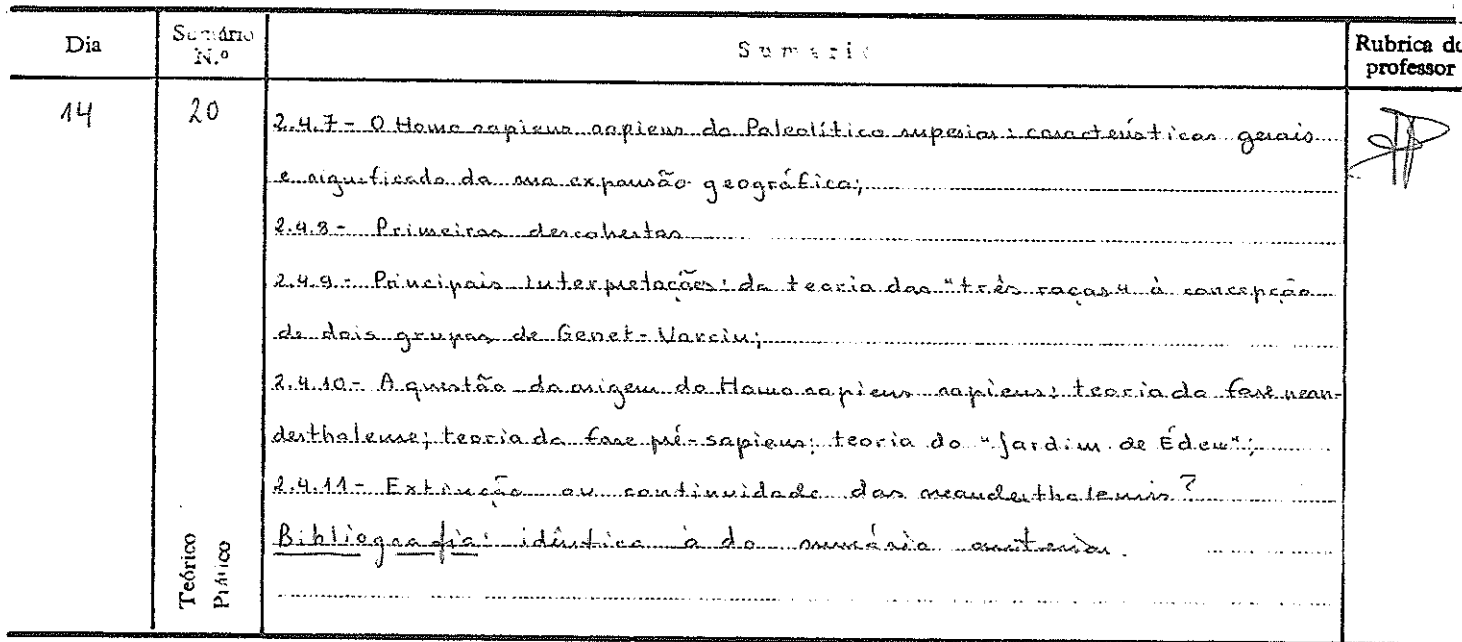 Dia
Sumário N.º
Sumario
Rubrica do professor
14
20
2.4.7- O Homo sapiens sapiens do Paleolítico superior: características gerais
e significado da sua expansão geográfica;
2.4.8- Primeiras descobertas
2.4.9- Principais interpretações: da teoria das "três raças" à concepção
de dois grupos de Genet-Varcin;
2.4.10- A questão da origem do Homo sapiens sapiens: teoria da fase nean-
derthalense; teoria da fase pré-sapiens; teoria do "Jardim de Éden";
2.4.11- Extinção ou continuidade dos neanderthalensis?
Bibliografia: idêntica à do sumário anterior.
Teórico
Prático